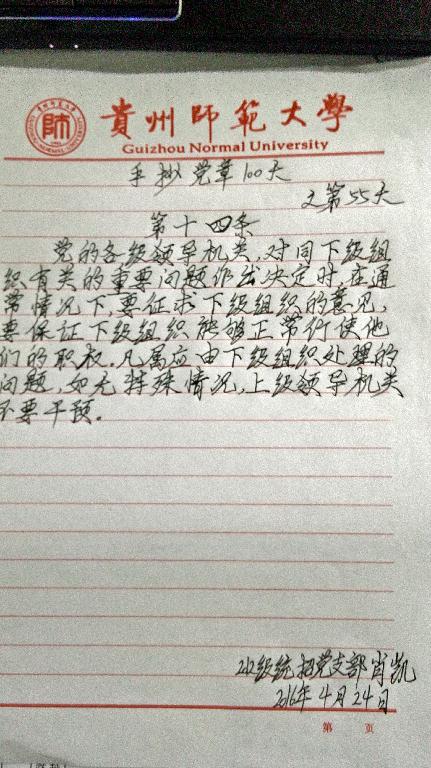 貴州師範大學
Guizhou Normal University
手抄党章100天
之第55天
第十四条
党的各级领导机关,对同下级组
织有关的重要问题作出决定时,在通
常情况下,要征求下级组织的意见,
要保证下级组织能够正常行使他
们的职权。凡属应由下级组织处理的
问题,如无特殊情况,上级领导机关
不要干预。
级统招党支部肖凯
2016年4月24日
第 页